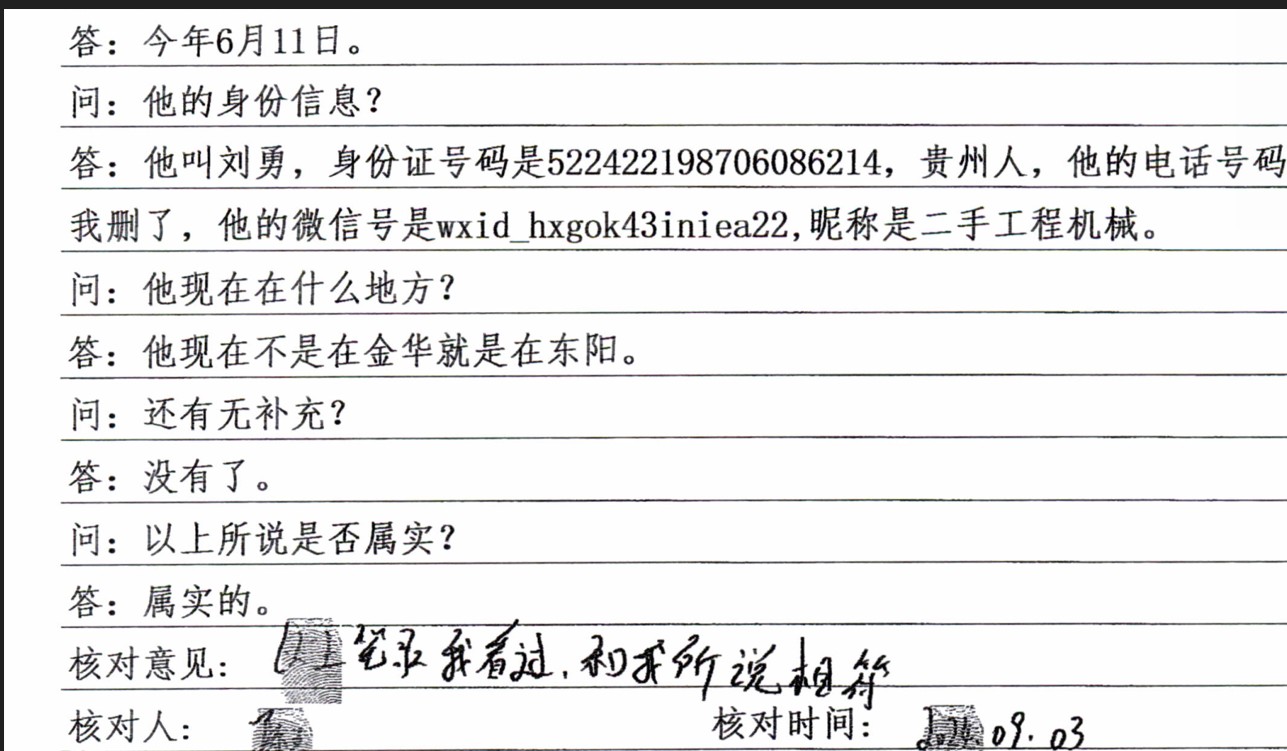 答：今年6月11日。
问：他的身份信息？
答：他叫刘勇，身份证号码是522422198706086214，贵州人，他的电话号码
我删了，他的微信号是wxid_hxgok43iniea22,昵称是二手工程机械。
问：他现在在什么地方？
答：他现在不是在金华就是在东阳。
问：还有无补充？
答：没有了。
问：以上所说是否属实？
答：属实的。
核对意见：以上笔录我看过，和我所说相符
核对人：
核对时间：2024.09.03